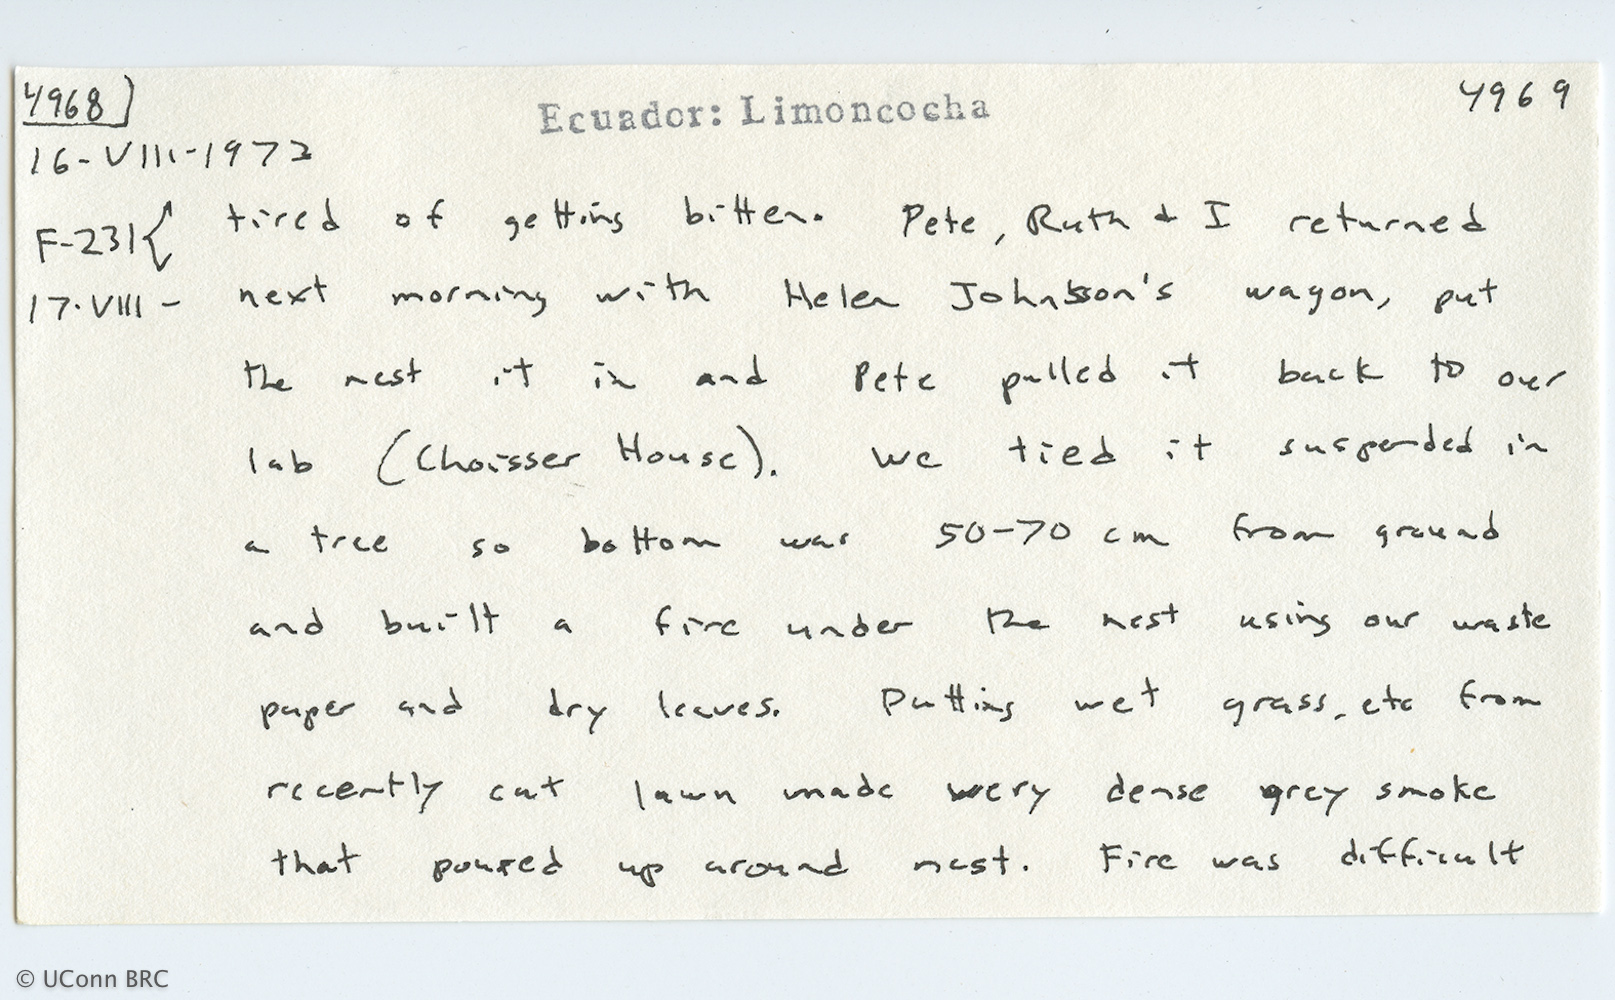 4968]
Ecuador: Limoncocha
4969
16-VIII-1972
F-231{ tired of getting bitten. Pete, Ruth + I returned
17.VIII- next morning with Helen Johnson's wagon, put
the nest it in and Pete pulled it back to our
lab (Choisser House). We tied it suspended in
a tree so bottom was 50-70 cm from ground
and built a fire under the nest using our waste
paper and dry leaves. Putting wet grass, etc from
recently cut lawn made very dense grey smoke
that poured up around nest. Fire was difficult
© UConn BRC